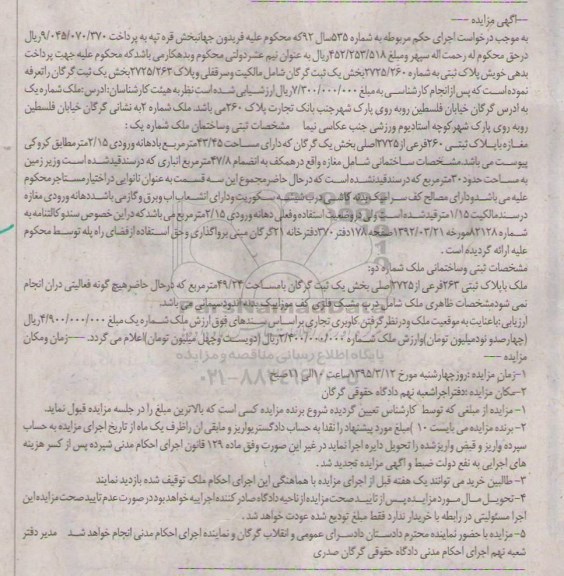 —آگهی مزایده —
به موجب درخواست اجرای حکم مربوطه به شماره ۵۳۵سال ۹۲که محکوم علیه فریدون جهانبخش قره تپه به پرداخت ۹/۰۴۵/۰۷۰/۳۷۰ریال
درحق محکوم له رحمت اله سپهر ومبلغ ۴۵۲/۲۵۳/۵۱۸ریال به عنوان نیم عشردولتی محکوم وبدهکارمی باشدکه محکوم علیه جهت پرداخت
بدهی خویش پلاک ثبتی به شماره ۲۷۲۵/۲۶۰بخش یک ثبت گرگان شامل مالکیت وسرقفلی وپلاک ۲۷۲۵/۲۶۳بخش یک ثبت گرگان راتعرفه
نموده است که پس ازانجام کارشناسی به مبلغ ۷/۳۰۰/۰۰۰/۰۰۰ریال ارزشیابی شده است نظربه هیئت کارشناسان:ادرس:ملک شماره یک
به ادرس گرگان خیابان فلسطین روبه روی پارک شهرجنب بانک تجارت پلاک ۲۶۰می باشد. ملک شماره ۲به نشانی گرگان خیابان فلسطین
روبه روی پارک شهرکوچه استادیوم ورزشی جنب عکاسی نیما مشخصات ثبتی وساختمان ملک شماره یک :
مغازه باپلاک ثبتی ۲۶۰فرعی از۲۷۲۵اصلی بخش یک گرگان که دارای مساحت ۴۳/۴۵مترمربع بادهانه ورودی ۲/۱۵مترمطابق کروکی
پیوست می باشد مشخصات ساختمانی شامل مغازه واقع درهمکف به انضمام ۴۷/۸مترمربع انباری که درسندقیدشده است وزیر زمین
به مساحت حدود ۳۰مترمربع که درسندقیدنشده است که درحال حاضرمجموع این سه قسمت به عنوان نانوایی دراختیار مستاجرمحکوم
علیه می باشدودارای مصالح کف سرامیک وبدنه کاشی درب شیشه سکوریت ودارای انشعاب اب وبرق وگازمی باشددهانه ورودی مغازه
درسندمالکیت ۱/۱۵مترقیدشده است ولی دروضعیت استفاده وفعلی دهانه ورودی ۲/۱۵مترمربع می باشدکه دراین خصوص سندوکالتنامه به
شماره ۸۲۱۲۸مورخه ۱۳۹۲/۰۳/۲۱صفحه ۱۷۸دفتر ۳۷۰دفترخانه ۲۱گرگان مبنی برواگذاری وحق استفاده ازفضای راه پله توسط محکوم
علیه ارائه گردیده است .
مشخصات ثبتی وساختمانی ملک شماره دو:
ملک باپلاک ثبتی ۲۶۳فرعی از۲۷۲۵اصلی بخش یک ثبت گرگان بامساحت ۴۹/۲۴مترمربع که درحال حاضرهیچ گونه فعالیتی دران انجام
نمی شودمشخصات ظاهری ملک شامل درب مشبک فلزی کف موزاییک بدنه اندودسیمانی می باشد.
ارزیابی :باعنایت به موقعیت ملک ودرنظرگرفتن کاربری تجاری براساس سندهای فوق ارزش ملک شماره یک مبلغ ۴/۹۰۰/۰۰۰/۰۰۰ریال
(چهارصدونودمیلیون تومان)وارزش ملک شماره ۲/۴۰۰/۰۰۰/۰۰۰ریال (دویست وچهل میلیون تومان)اعلام می گردد. —زمان ومکان
مزایده —
۱-زمان مزایده :روزچهارشنبه مورخ ۱۳۹۵/۳/۱۲ساعت ۱۰الی ۱۱صبح
۲-مکان مزایده :دفتراجراشعبه نهم دادگاه حقوقی گرگان
۱- مزایده از مبلغی که توسط کارشناس تعیین گردیده شروع برنده مزایده کسی است که بالاترین مبلغ را در جلسه مزایده قبول نماید.
۲- برنده مزایده می بایست ۱۰ )مبلغ مورد پیشنهاد را نقدا به حساب دادگستریواریز و مابقی ان راظرف یک ماه از تاریخ اجرای مزایده به حساب
سپرده واریز و قبض واریزشده را تحویل دایره اجرا نماید در غیر این صورت وفق ماده ۱۲۹ قانون اجرای احکام مدنی شپرده پس از کسر هزینه
های اجرایی به نفع دولت ضبط و آگهی مزایده تجدید شد .
۳- طالبین خرید می توانند یک هفته قبل از اجرای مزایده با هماهنگی این اجرای احکام ملک توقیف شده بازدید نمایند
۴-تحویل مال مورد مزایده پس از تایید صحت مزایده از ناحیه دادگاه صادر کننده اجراییه خواهد بود در صورت عدم تایید صحت مزایده این
اجرا مسئولیتی در رابطه با خریدار ندارد فقط مبلغ تودیع شده عودت خواهد شد .
۵- مزایده با حضور نماینده محترم دادستان دادسرای عمومی و انقلاب گرگان و نماینده اجرای احکام مدنی انجام خواهد شد مدیر دفتر
شعبه نهم اجرای احکام مدنی دادگاه حقوقی گرگان صدری
ParsNamadData
پایگاه اطلاع رسانی مناقصه و مزایده
۰۲۱-۸۸۳۴۹۶۷۰